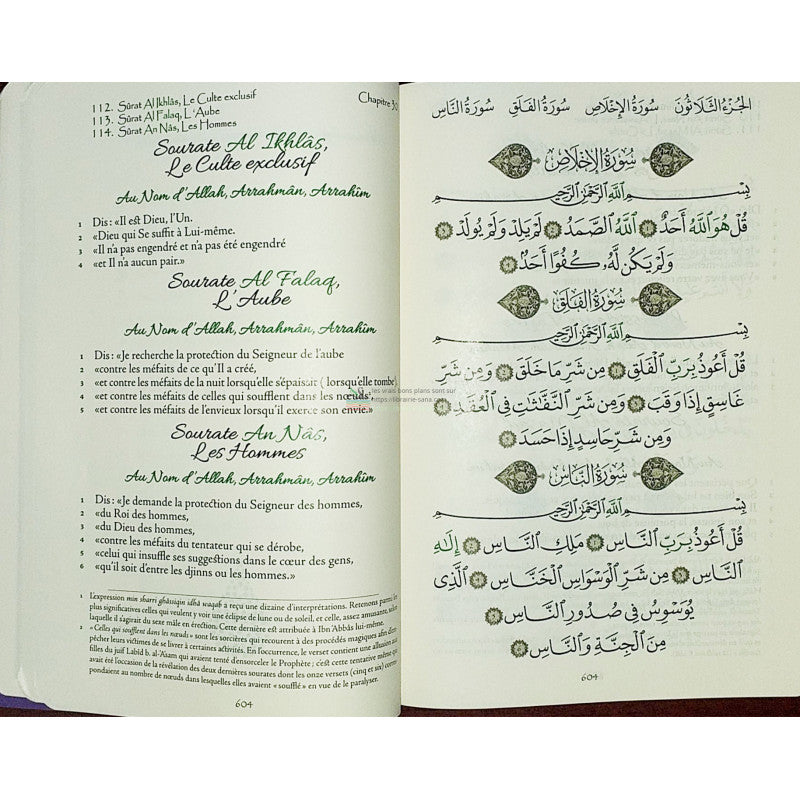 112. Sûrat Al Ikhlâs, Le Culte exclusif
113. Sûrat Al Falaq, L'Aube
114. Sûrat An Nâs, Les Hommes
Chapitre 30
Sourate Al Ikhlâs,
Le Culte exclusif
Au Nom d'Allah, Arrahmân, Arrahîm
1 Dis : «Il est Dieu, l'Un.
2 «Dieu qui Se suffit à Lui-même.
3 «Il n'a pas engendré et n'a pas été engendré
4 «et Il n'a aucun pair.»
Sourate Al Falaq,
L'Aube
Au Nom d'Allah, Arrahmân, Arrahîm
1 Dis : «Je recherche la protection du Seigneur de l'aube
2 «contre les méfaits de ce qu'Il a créé,
3 «et contre les méfaits de la nuit lorsqu'elle s'épaissit ( lorsqu'elle tombe)
4 «et contre les méfaits de celles qui soufflent dans les nœuds²,
5 «et contre les méfaits de l'envieux lorsqu'il exerce son envie.»
les vrais bons plans sont sur
https://librairie-sana.com
Sourate An Nâs,
Les Hommes
Au Nom d'Allah, Arrahmân, Arrahîm
1 Dis : «Je demande la protection du Seigneur des hommes,
2 «du Roi des hommes,
3 «du Dieu des hommes,
4 «contre les méfaits du tentateur qui se dérobe,
5 «celui qui insuffle ses suggestions dans le cœur des gens,
6 «qu'il soit d'entre les djinns ou les hommes.»
1 L'expression min sharri ghâssiqin idhâ waqab a reçu une dizaine d'interprétations. Retenons parmi les
plus significatives celles qui veulent y voir une éclipse de lune ou de soleil, et celle, assez amusante, selon
laquelle il s'agirait du sexe mâle en érection. Cette dernière est attribuée à Ibn 'Abbâs lui-même.
2 «Celles qui soufflent dans les nœuds» sont les sorcières qui recourent à des procédés magiques afin
pêcher leurs victimes de se livrer à certaines activités. En l'occurrence, le verset contient une allusion aux
filles du juif Labîd b. al-'Asam qui avaient tenté d'ensorceler le Prophète ; c'est cette tentative même qui
avait été l'occasion de la révélation des deux dernières sourates dont les onze versets (cinq et six)
pondaient au nombre de nœuds dans lesquelles elles avaient «soufflé» en vue de le paralyser.
604
الجُزْءُ الثَّلَاثُونَ سُورَةُ الإِخْلَاصِ سُورَةُ الفَلَقِ سُورَةُ النَّاسِ
سُورَةُ الإِخْلَاصِ
بِسْمِ ٱللَّهِ ٱلرَّحْمَٰنِ ٱلرَّحِيمِ
قُلْ هُوَ ٱللَّهُ أَحَدٌ ١ ٱللَّهُ ٱلصَّمَدُ ٢ لَمْ يَلِدْ وَلَمْ يُولَدْ ٣
وَلَمْ يَكُن لَّهُۥ كُفُوًا أَحَدٌۢ ٤
سُورَةُ الفَلَقِ
بِسْمِ ٱللَّهِ ٱلرَّحْمَٰنِ ٱلرَّحِيمِ
قُلْ أَعُوذُ بِرَبِّ ٱلْفَلَقِ ١ مِن شَرِّ مَا خَلَقَ ٢ وَمِن شَرِّ
غَاسِقٍ إِذَا وَقَبَ ٣ وَمِن شَرِّ ٱلنَّفَّٰثَٰتِ فِى ٱلْعُقَدِ ٤
وَمِن شَرِّ حَاسِدٍ إِذَا حَسَدَ ٥
سُورَةُ النَّاسِ
بِسْمِ ٱللَّهِ ٱلرَّحْمَٰنِ ٱلرَّحِيمِ
قُلْ أَعُوذُ بِرَبِّ ٱلنَّاسِ ١ مَلِكِ ٱلنَّاسِ ٢ إِلَٰهِ
ٱلنَّاسِ ٣ مِن شَرِّ ٱلْوَسْوَاسِ ٱلْخَنَّاسِ ٤ ٱلَّذِى
يُوَسْوِسُ فِى صُدُورِ ٱلنَّاسِ ٥
مِنَ ٱلْجِنَّةِ وَٱلنَّاسِ ٦
604